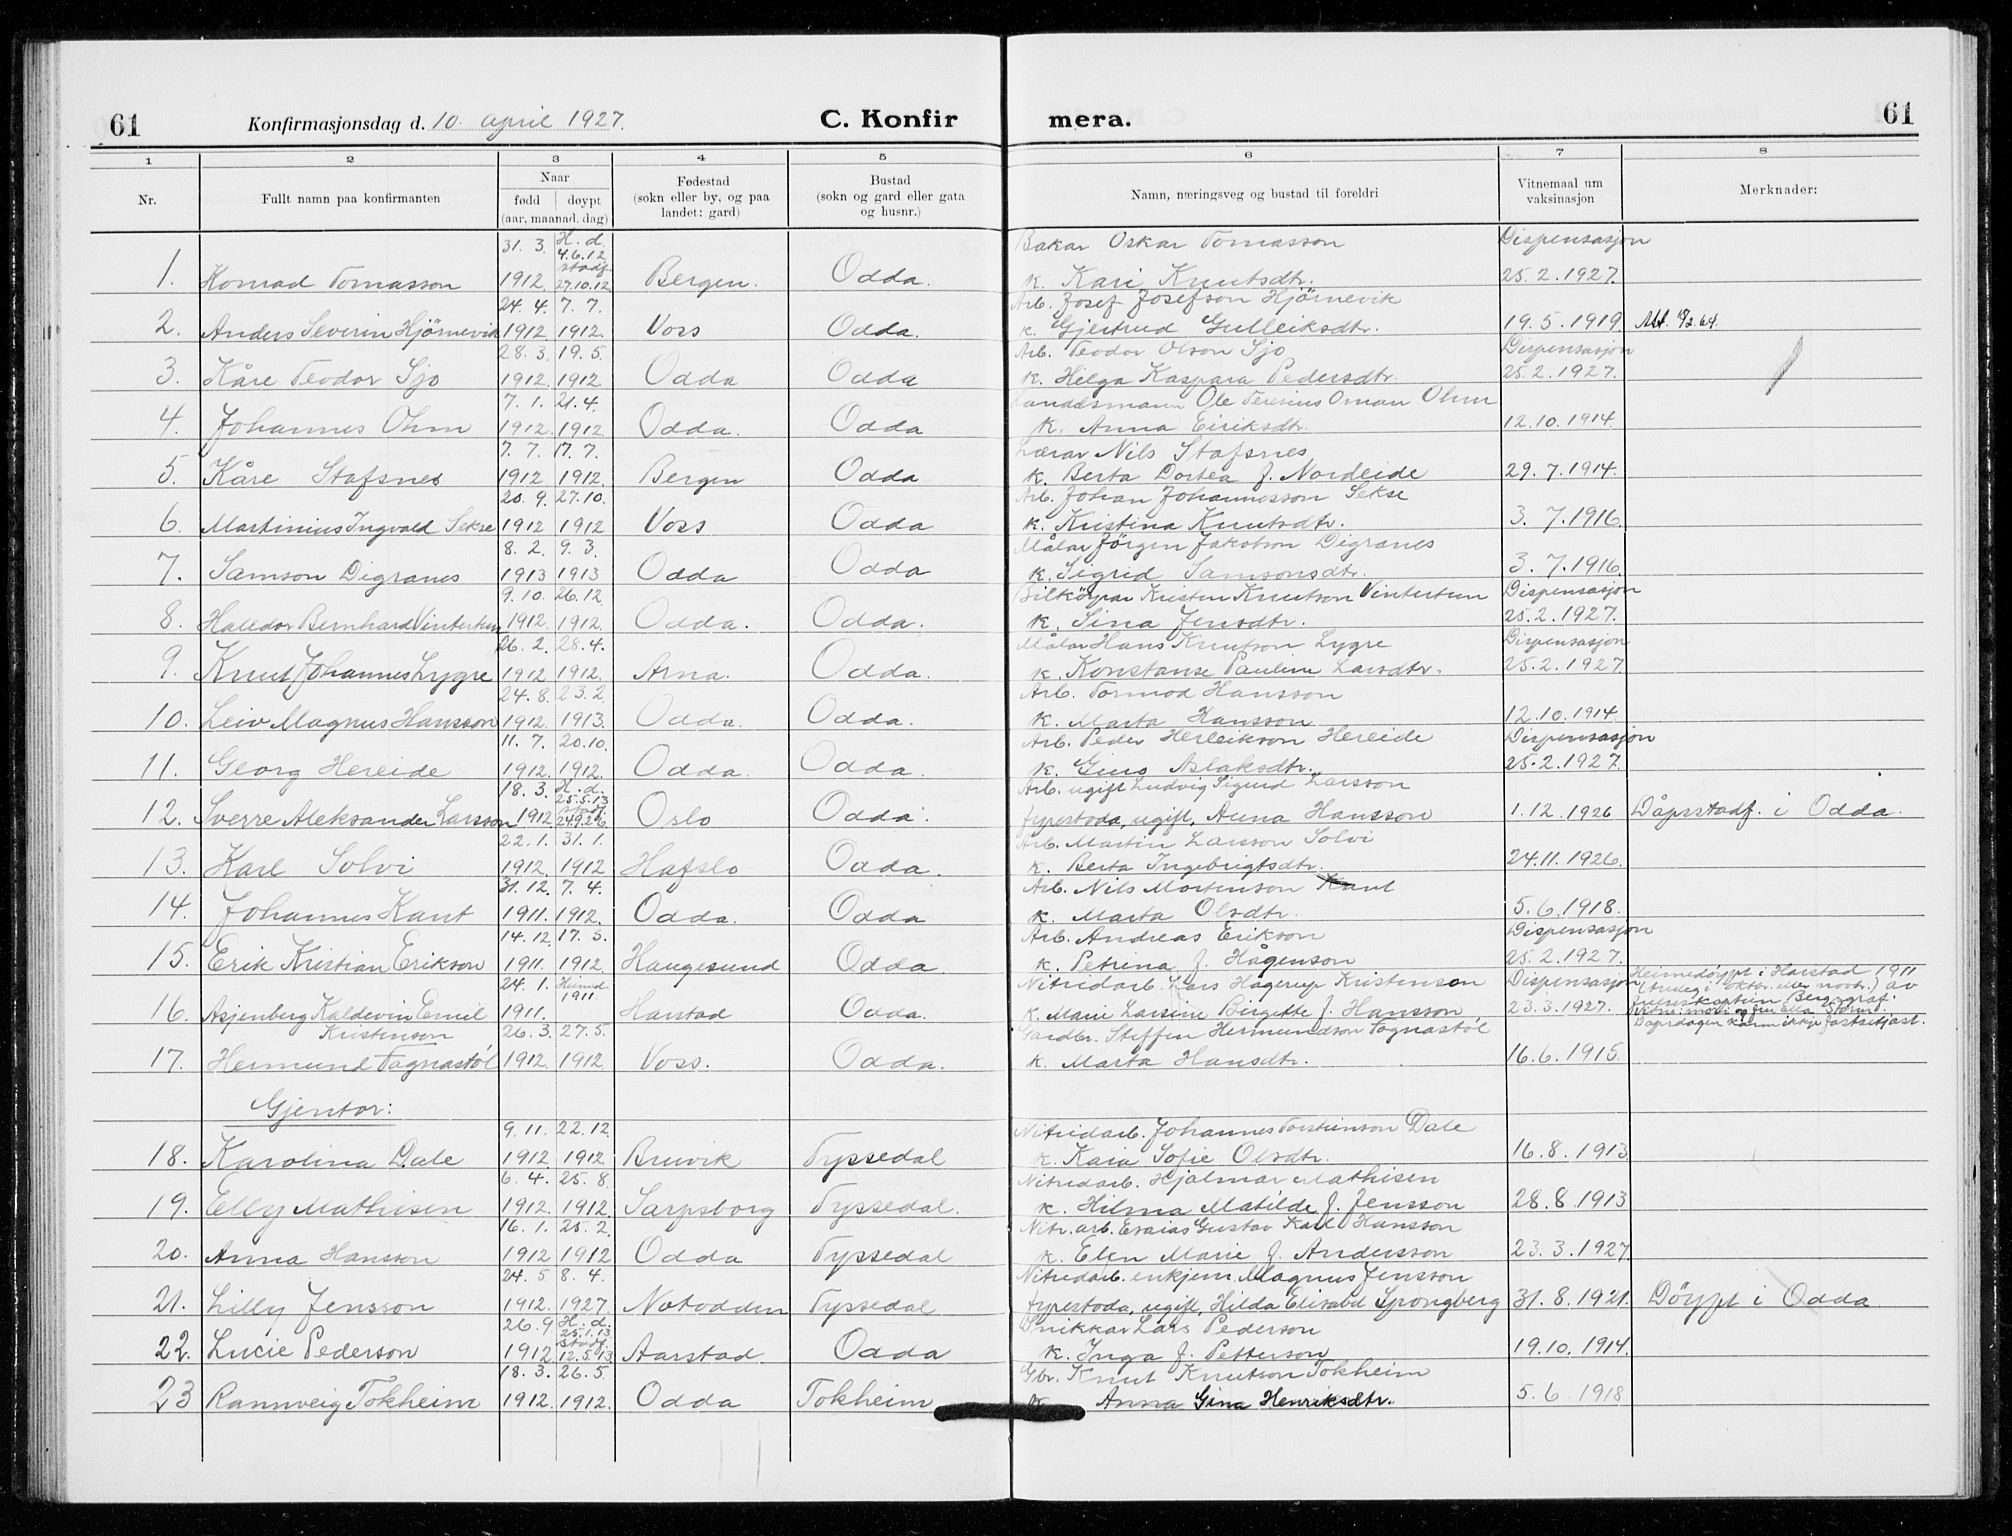 61 Konfirmasjonsdag d. 10. april 1927. C. Konfir mera. 61
1 2 3 4 5 6 7 8
Nr. Fullt namn paa konfirmanten Naar fødd døypt (aar, maanad, dag) Fødestad (sokn eller by, og paa landet: gard) Bustad (sokn og gard eller gata og husnr.) Namn, næringsveg og bustad til foreldri Vitnemaal um vaksinasjon Merknader:
31. 3. H. d. 4.6.12 stadf. Bakar Oskar Tomasson Dispensasjon
1. Konrad Tomasson 1912 27.10.12 Bergen. Odda. k. Kari Knutsdtr. 25.2.1927.
24. 4. 7. 7. Arb. Josef Josefson Hjörnevik
2. Anders Severin Hjörnevik 1912 1912. Voss Odda. k. Gjertrud Gulleiksdtr. 19.5.1919 Att. 18/2.64.
28. 3. 19. 5. Arb. Teodor Olson Sjo Dispensasjon
3. Kåre Teodor Sjo 1912. 1912 Odda Odda k. Helga Kaspara Pedersdtr. 25.2.1927.
7. 1. 21. 4. Ole Teresius Oman Ohm
4. Johannes Ohm 1912. 1912 Odda. Odda k. Anna Eiriksdtr. 12.10.1914.
7. 7. 17. 7. Lærar Nils Stafsnes
5. Kåre Stafsnes 1912 1912. Bergen Odda k. Berta Dortea f. Nordeide 29.7.1914.
20. 9. 27.10. Arb. Johan Johannesson Sekse
6. Martinius Ingvald Sekse 1912 1912 Voss Odda k. Kristina Knutsdtr. 3.7.1916
8. 2. 9. 3. Målar Jörgen Jakobson Digranes
7. Samson Digranes 1913 1913 Odda Odda k. Sigrid Samsonsdtr. 3.7.1916
9. 10. 26.12. Bilköyrar Kristen Knutson Vintertun Dispensasjon
8. Halldor Bernhard Vintertun 1912. 1912. Odda. Odda. k. Sina Jensdtr. 25.2.1927.
26. 2. 28. 4. Målar Hans Knutson Lygre Dispensasjon
9. Knut Johannes Lygre 1912 1912. Arna. Odda. k. Konstanse Pauline Larsdtr. 25.2.1927
24. 8. 23.2. Arb. Tormod Hansson
10. Leiv Magnus Hansson 1912. 1913. Odda. Odda. k. Marta Hansson 12.10.1914.
11. 7. 20.10. Arb. Peder Herleikson Hereide Dispensasjon
11. Georg Hereide 1912. 1912. Odda. Odda. k. Gino Aslaksdtr. 25.2.1927.
18. 3. H. d. 25.5.13 stadf. Arb. ugift Ludvig Sigurd Larsson
12. Sverre Aleksander Larsson 1912 24.9.26. Oslo Odda. fyrestoda, ugift, Anna Hansson 1.12.1926 Dåpsstadf. i Odda.
22. 1. 31. 1. Arb. Martin Larsson Solvi
13. Karl Solvi 1912. 1912 Hafslo Odda. k. Berta Ingebrigtsdtr. 24.11.1926.
31. 12. 7. 4. Arb. Nils Mortenson Kant
14. Johannes Kant 1911. 1912. Odda. Odda k. Marta Olsdtr. 5.6.1918.
14. 12. 17. 3. Arb. Andreas Erikson Dispensasjon
15. Erik Kristian Erikson 1911. 1912. Haugesund Odda k. Petrina f. Hågenson 25.2.1927.
24. 1. Heimd. 1911 Nitridarb. Lars Hagerup Kristenson Dispensasjon Heimedöypt i Harstad 1911
(truleg i oktbr. eller novbr.) av
16. Asjenberg Kaldevin Emil Kristenson 1911. Harstad Odda. k. Marie Larsine Birgette f. Hansson 23.3.1927. kaptein Berggraf.
Dåpsdagen kann ikkje fastsetjast.
26. 3. 27. 5. Gardbr. Steffen Hermundson Tognastöl
17. Hermund Tognastöl 1912. 1912 Voss. Odda. k. Marta Hansdtr. 16.6.1915.
Gjentor:
9. 11. 22. 12. Nitridarb. Johannes Torsteinson Dale
18. Karolina Dale 1912 1912 Bruvik Tyssedal k. Kaia Sofie Olsdtr. 16.8.1913
6. 4. 25. 8. Nitridarb. Hjalmar Mathisen
19. Elly Mathisen 1912. 1912 Sarpsborg Tyssedal. k. Hilma Matilde f. Jensson 28.8.1913
16. 1. 25. 2. Nitr. arb. Esaias Gustav Karl Hansson
20. Anna Hansson 1912 1912 Odda Tyssedal k. Elen Marie f. Andersson 23.3.1927.
24. 5 8. 4. Nitridarb. enkjem. Magnus Jensson
21. Lilly Jensson 1912. 1927. Notodden Tyssedal fyrestoda, ugift, Hilda Elisabet Spongberg 31.8.1921. Döypt i Odda
26. 9 H. d. 25.1.13 stadf. Snikkar Lars Pederson
22. Lucie Pederson 1912 12.5.13 Aarstad. Odda k. Inga f. Petterson 19.10.1914.
18. 3. 26. 5. Gbr. Knut Knutson Tokheim
23 Rannveig Tokheim 1912. 1912. Odda Tokheim k. Anna Gina Henriksdtr. 5.6.1918